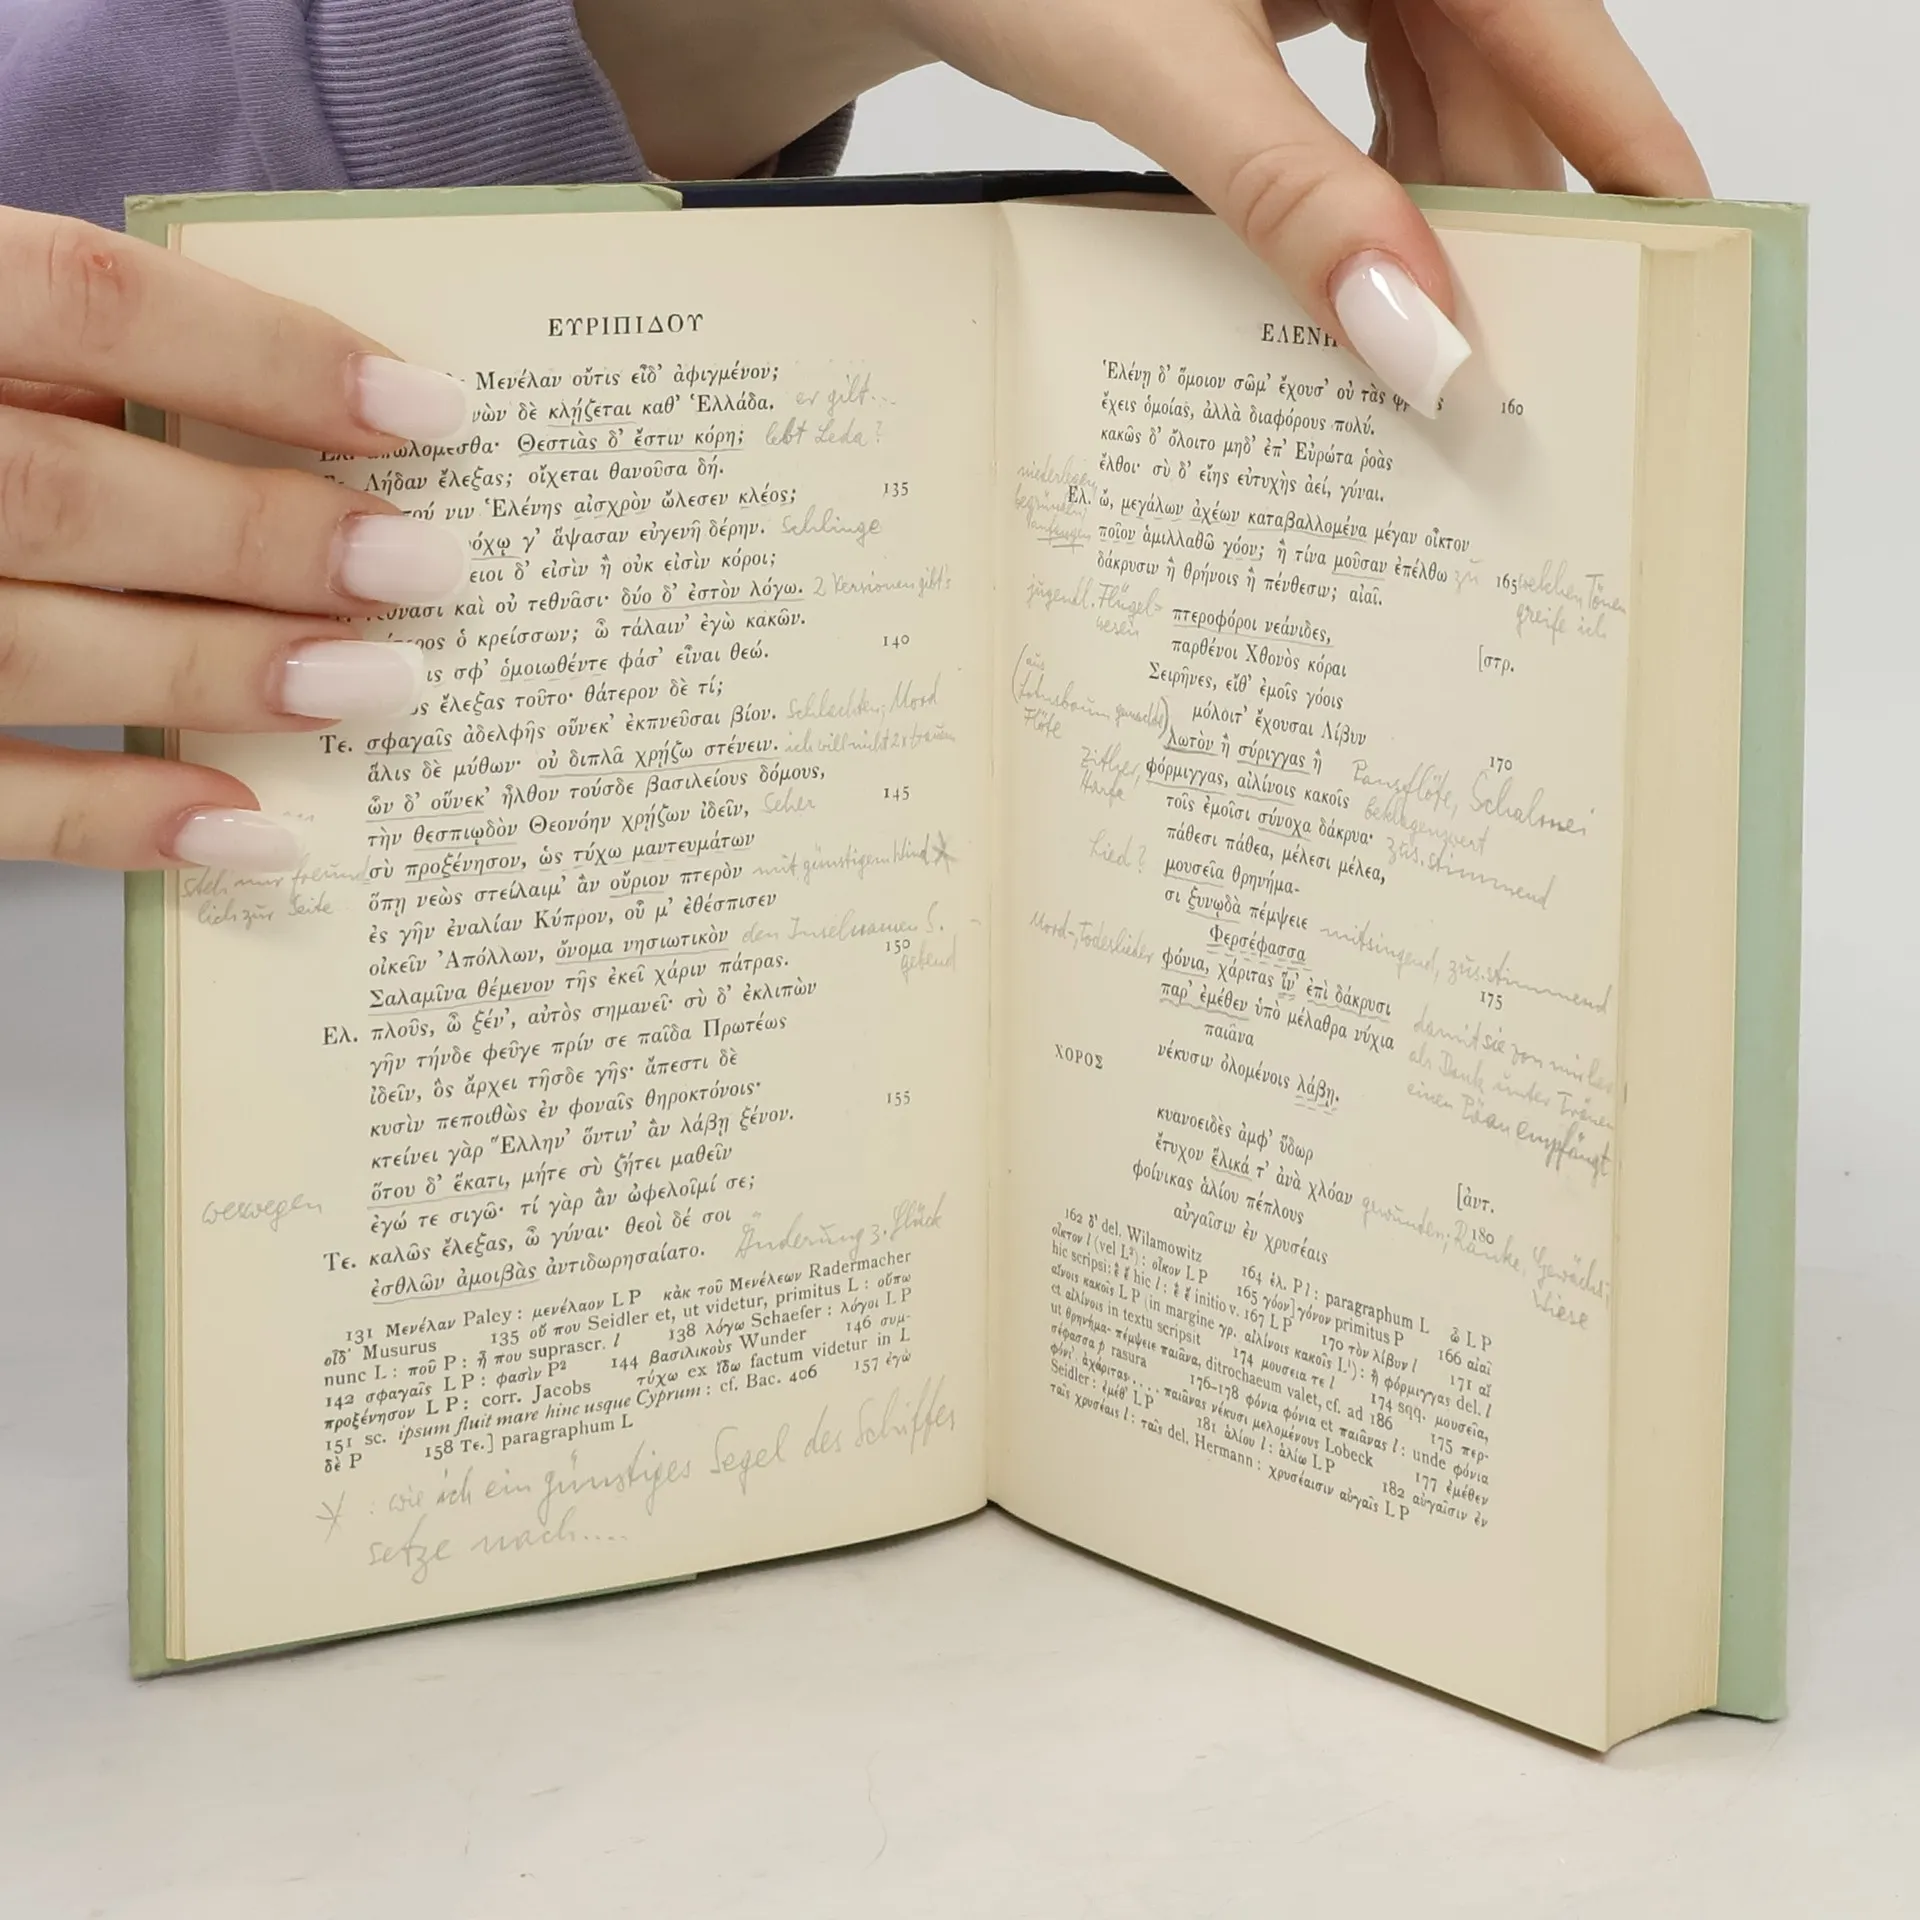 ΕΥΡΙΠΙΔΟΥ
Μενέλαν οὔτις εἶδ' ἀφιγμένον;
δὲ κλῄζεται καθ' Ἑλλάδα. er gilt...
Θεστιὰς δ' ἔστιν κόρη; lebt Leda?
Λήδαν ἔλεξας; οἴχεται θανοῦσα δή.
νιν Ἑλένης αἰσχρὸν ὤλεσεν κλέος; 135
γ' ἅψασαν εὐγενῆ δέρην. Schlinge
δ' εἰσὶν ἢ οὐκ εἰσὶν κόροι;
καὶ οὐ τεθνᾶσι· δύο δ' ἐστὸν λόγω. 2 Versionen gibt's
ὁ κρείσσων; ὦ τάλαιν' ἐγὼ κακῶν.
σφ' ὁμοιωθέντε φάσ' εἶναι θεώ. 140
ἔλεξας τοῦτο· θάτερον δὲ τί;
Τε. σφαγαῖς ἀδελφῆς οὕνεκ' ἐκπνεῦσαι βίον. Schlachten, Mord
ἅλις δὲ μύθων· οὐ διπλᾶ χρῄζω στένειν. ich will nicht 2x trauern
ὧν δ' οὕνεκ' ἦλθον τούσδε βασιλείους δόμους,
τὴν θεσπιῳδὸν Θεονόην χρῄζων ἰδεῖν, Seher 145
σὺ προξένησον, ὡς τύχω μαντευμάτων
steh mir freundlich zur Seite
ὅπῃ νεὼς στείλαιμ' ἂν οὔριον πτερὸν mit günstigem Wind
ἐς γῆν ἐναλίαν Κύπρον, οὗ μ' ἐθέσπισεν
οἰκεῖν Ἀπόλλων, ὄνομα νησιωτικὸν den Inselnamen S. gebend
Σαλαμῖνα θέμενον τῆς ἐκεῖ χάριν πάτρας. 150
Ελ. πλοῦς, ὦ ξέν', αὐτὸς σημανεῖ· σὺ δ' ἐκλιπὼν
γῆν τήνδε φεῦγε πρίν σε παῖδα Πρωτέως
ἰδεῖν, ὃς ἄρχει τῆσδε γῆς· ἄπεστι δὲ
κυσὶν πεποιθὼς ἐν φοναῖς θηροκτόνοις·
κτείνει γὰρ Ἕλλην' ὅντιν' ἂν λάβῃ ξένον. 155
ὅτου δ' ἕκατι, μήτε σὺ ζήτει μαθεῖν
ἐγώ τε σιγῶ· τί γὰρ ἂν ὠφελοῖμί σε;
Τε. καλῶς ἔλεξας, ὦ γύναι· θεοὶ δέ σοι
ἐσθλῶν ἀμοιβὰς ἀντιδωρησαίατο. Änderung z. Glück
131 Μενέλαν Paley : μενέλαον L P κἀκ τοῦ Μενέλεων Radermacher
οἶδ' Musurus 135 οὔ που Seidler et, ut videtur, primitus L : οὔπω
nunc L : ποῦ P : ἦ που suprascr. l 138 λόγω Schaefer : λόγοι L P
142 σφαγαῖς L P : φασὶν P² 144 βασιλικοὺς Wunder 146 συμ-
προξένησον L P : corr. Jacobs τύχω ex ἴδω factum videtur in L
151 sc. ipsum fluit mare hinc usque Cyprum : cf. Bac. 406 157 ἐγὼ
δὲ P 158 Τε.] paragraphum L
: wie ich ein günstiges Segel des Schiffes
setze nach....
ΕΛΕΝΗ
Ἑλένῃ δ' ὅμοιον σῶμ' ἔχουσ' οὐ τὰς 160
ἔχεις ὁμοίας, ἀλλὰ διαφόρους πολύ.
κακῶς δ' ὄλοιτο μηδ' ἐπ' Εὐρώτα ῥοὰς
ἔλθοι· σὺ δ' εἴης εὐτυχὴς ἀεί, γύναι.
niederlegen,
Ελ. ὤ, μεγάλων ἀχέων καταβαλλομένα μέγαν οἶκτον
ποῖον ἁμιλλαθῶ γόον; ἢ τίνα μοῦσαν ἐπέλθω zu welchen Tönen greife ich 165
δάκρυσιν ἢ θρήνοις ἢ πένθεσιν; αἰαῖ.
jugendl. Flügelwesen
πτεροφόροι νεάνιδες,
παρθένοι Χθονὸς κόραι [στρ.
Σειρῆνες, εἴθ' ἐμοῖς γόοις
μόλοιτ' ἔχουσαι Λίβυν
(aus Lotusbaum gemachte) Flöte
λωτὸν ἢ σύριγγας ἢ 170
Panflöte, Schalmei
Zither, Harfe
φόρμιγγας, αἰλίνοις κακοῖς beklagenswert
τοῖς ἐμοῖσι σύνοχα δάκρυα· zus.stimmend
πάθεσι πάθεα, μέλεσι μέλεα,
Lied?
μουσεῖα θρηνήμα-
σι ξυνῳδὰ πέμψειε mitsingend, zus.stimmend
Φερσέφασσα 175
Mord-, Todeslieder
φόνια, χάριτας ἵν' ἐπὶ δάκρυσι
παρ' ἐμέθεν ὑπὸ μέλαθρα νύχια
παιᾶνα
νέκυσιν ὀλομένοις λάβῃ.
damit sie von mir her
als Dank unter Tränen
einen Päan empfängt
ΧΟΡΟΣ
κυανοειδὲς ἀμφ' ὕδωρ
ἔτυχον ἕλικά τ' ἀνὰ χλόαν [ἀντ.
gewunden; Ranke, Gewächs; Wiese
φοίνικας ἁλίου πέπλους 180
αὐγαῖσιν ἐν χρυσέαις
162 δ' del. Wilamowitz 164 ἑλ. P l : paragraphum L ὦ L P
οἶκτον l (vel L²) : οἶκον L P 165 γόον] γόνον primitus P 166 αἰαῖ
hic scripsi : ἒ ἔ hic l : ἒ ἔ initio v. 167 L P 170 τὸν λίβυν l 171 αἰ
αίνοις κακοῖς L P (in margine γρ. αἰλίνοις κακοῖς L¹) : ἢ φόρμιγγας del. l
et αἰλίνοις in textu scripsit 174 μουσεια τε l 174 sqq. μουσεῖα,
ut θρηνήμα- πέμψειε παιᾶνα, ditrochaeum valet, cf. ad 186 175 περ-
σέφασσα p rasura 176-178 φόνια φόνια et παιᾶνας l : unde φόνια
φόνι' ἀχάριτας.... παιᾶνας νέκυσι μελομένους Lobeck 177 ἐμέθεν
Seidler : ἐμέθ' L P 181 ἁλίου l : ἁλίω L P 182 αὐγαῖσιν ἐν
ταῖς χρυσέαις l : ταῖς del. Hermann : χρυσέαισιν αὐγαῖς L P